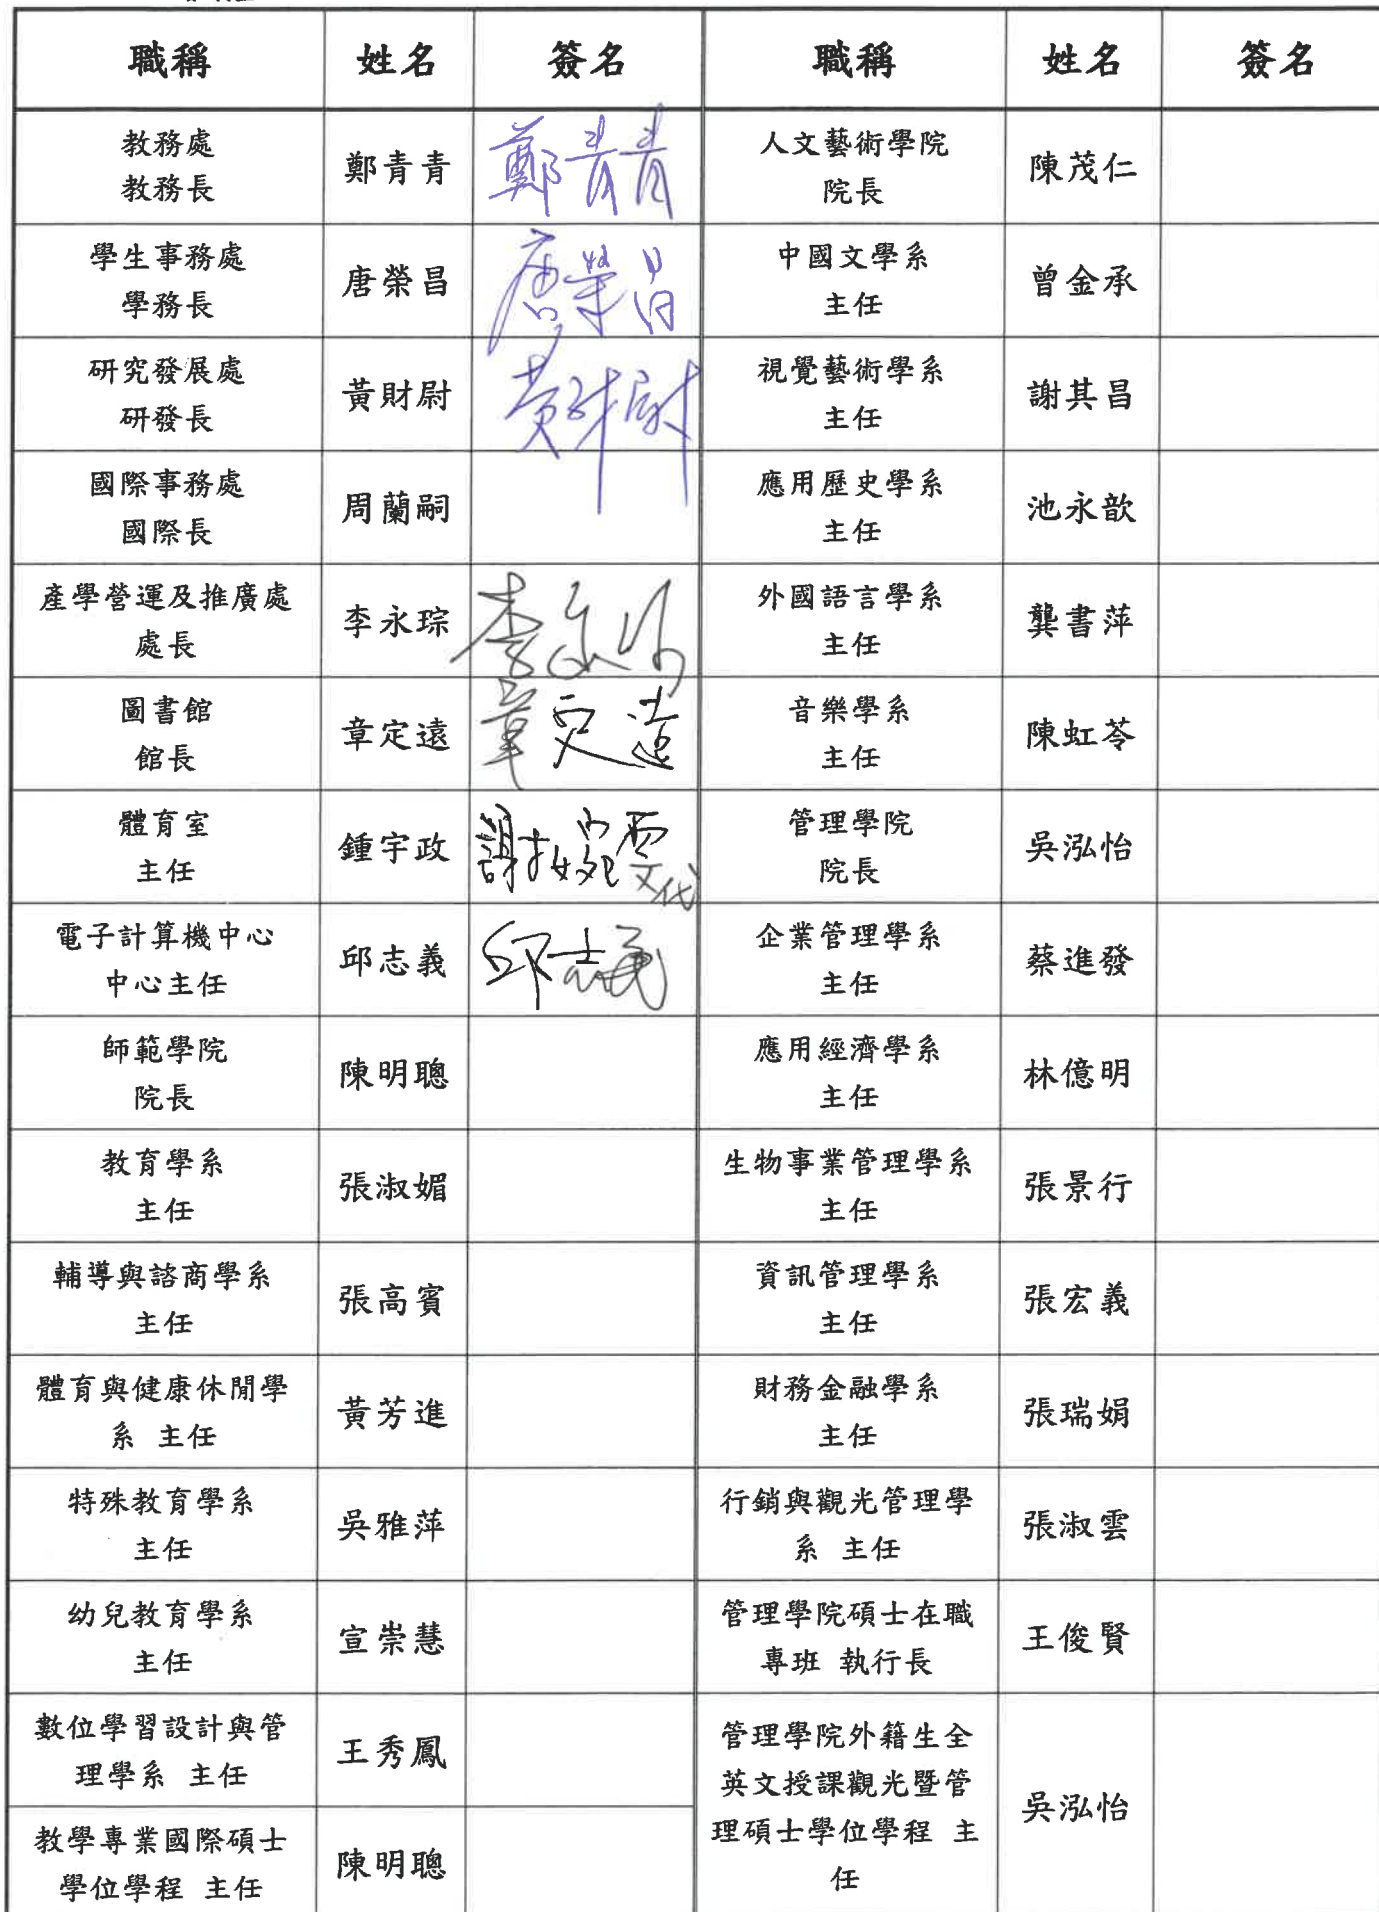 職稱 姓名 簽名 職稱 姓名 簽名
教務處 教務長 鄭青青 鄭青青 人文藝術學院 院長 陳茂仁
學生事務處 學務長 唐榮昌 唐榮昌 中國文學系 主任 曾金承
研究發展處 研發長 黃財尉 黃財尉 視覺藝術學系 主任 謝其昌
國際事務處 國際長 周蘭嗣 應用歷史學系 主任 池永歆
產學營運及推廣處 處長 李永琮 李永琮 外國語言學系 主任 龔書萍
圖書館 館長 章定遠 章定遠 音樂學系 主任 陳虹苓
體育室 主任 鍾宇政 代 管理學院 院長 吳泓怡
電子計算機中心 中心主任 邱志義 邱志義 企業管理學系 主任 蔡進發
師範學院 院長 陳明聰 應用經濟學系 主任 林億明
教育學系 主任 張淑媚 生物事業管理學系 主任 張景行
輔導與諮商學系 主任 張高賓 資訊管理學系 主任 張宏義
體育與健康休閒學系 主任 黃芳進 財務金融學系 主任 張瑞娟
特殊教育學系 主任 吳雅萍 行銷與觀光管理學系 主任 張淑雲
幼兒教育學系 主任 宣崇慧 管理學院碩士在職專班 執行長 王俊賢
數位學習設計與管理學系 主任 王秀鳳 管理學院外籍生全英文授課觀光暨管理碩士學位學程 主任 吳泓怡
教學專業國際碩士學位學程 主任 陳明聰